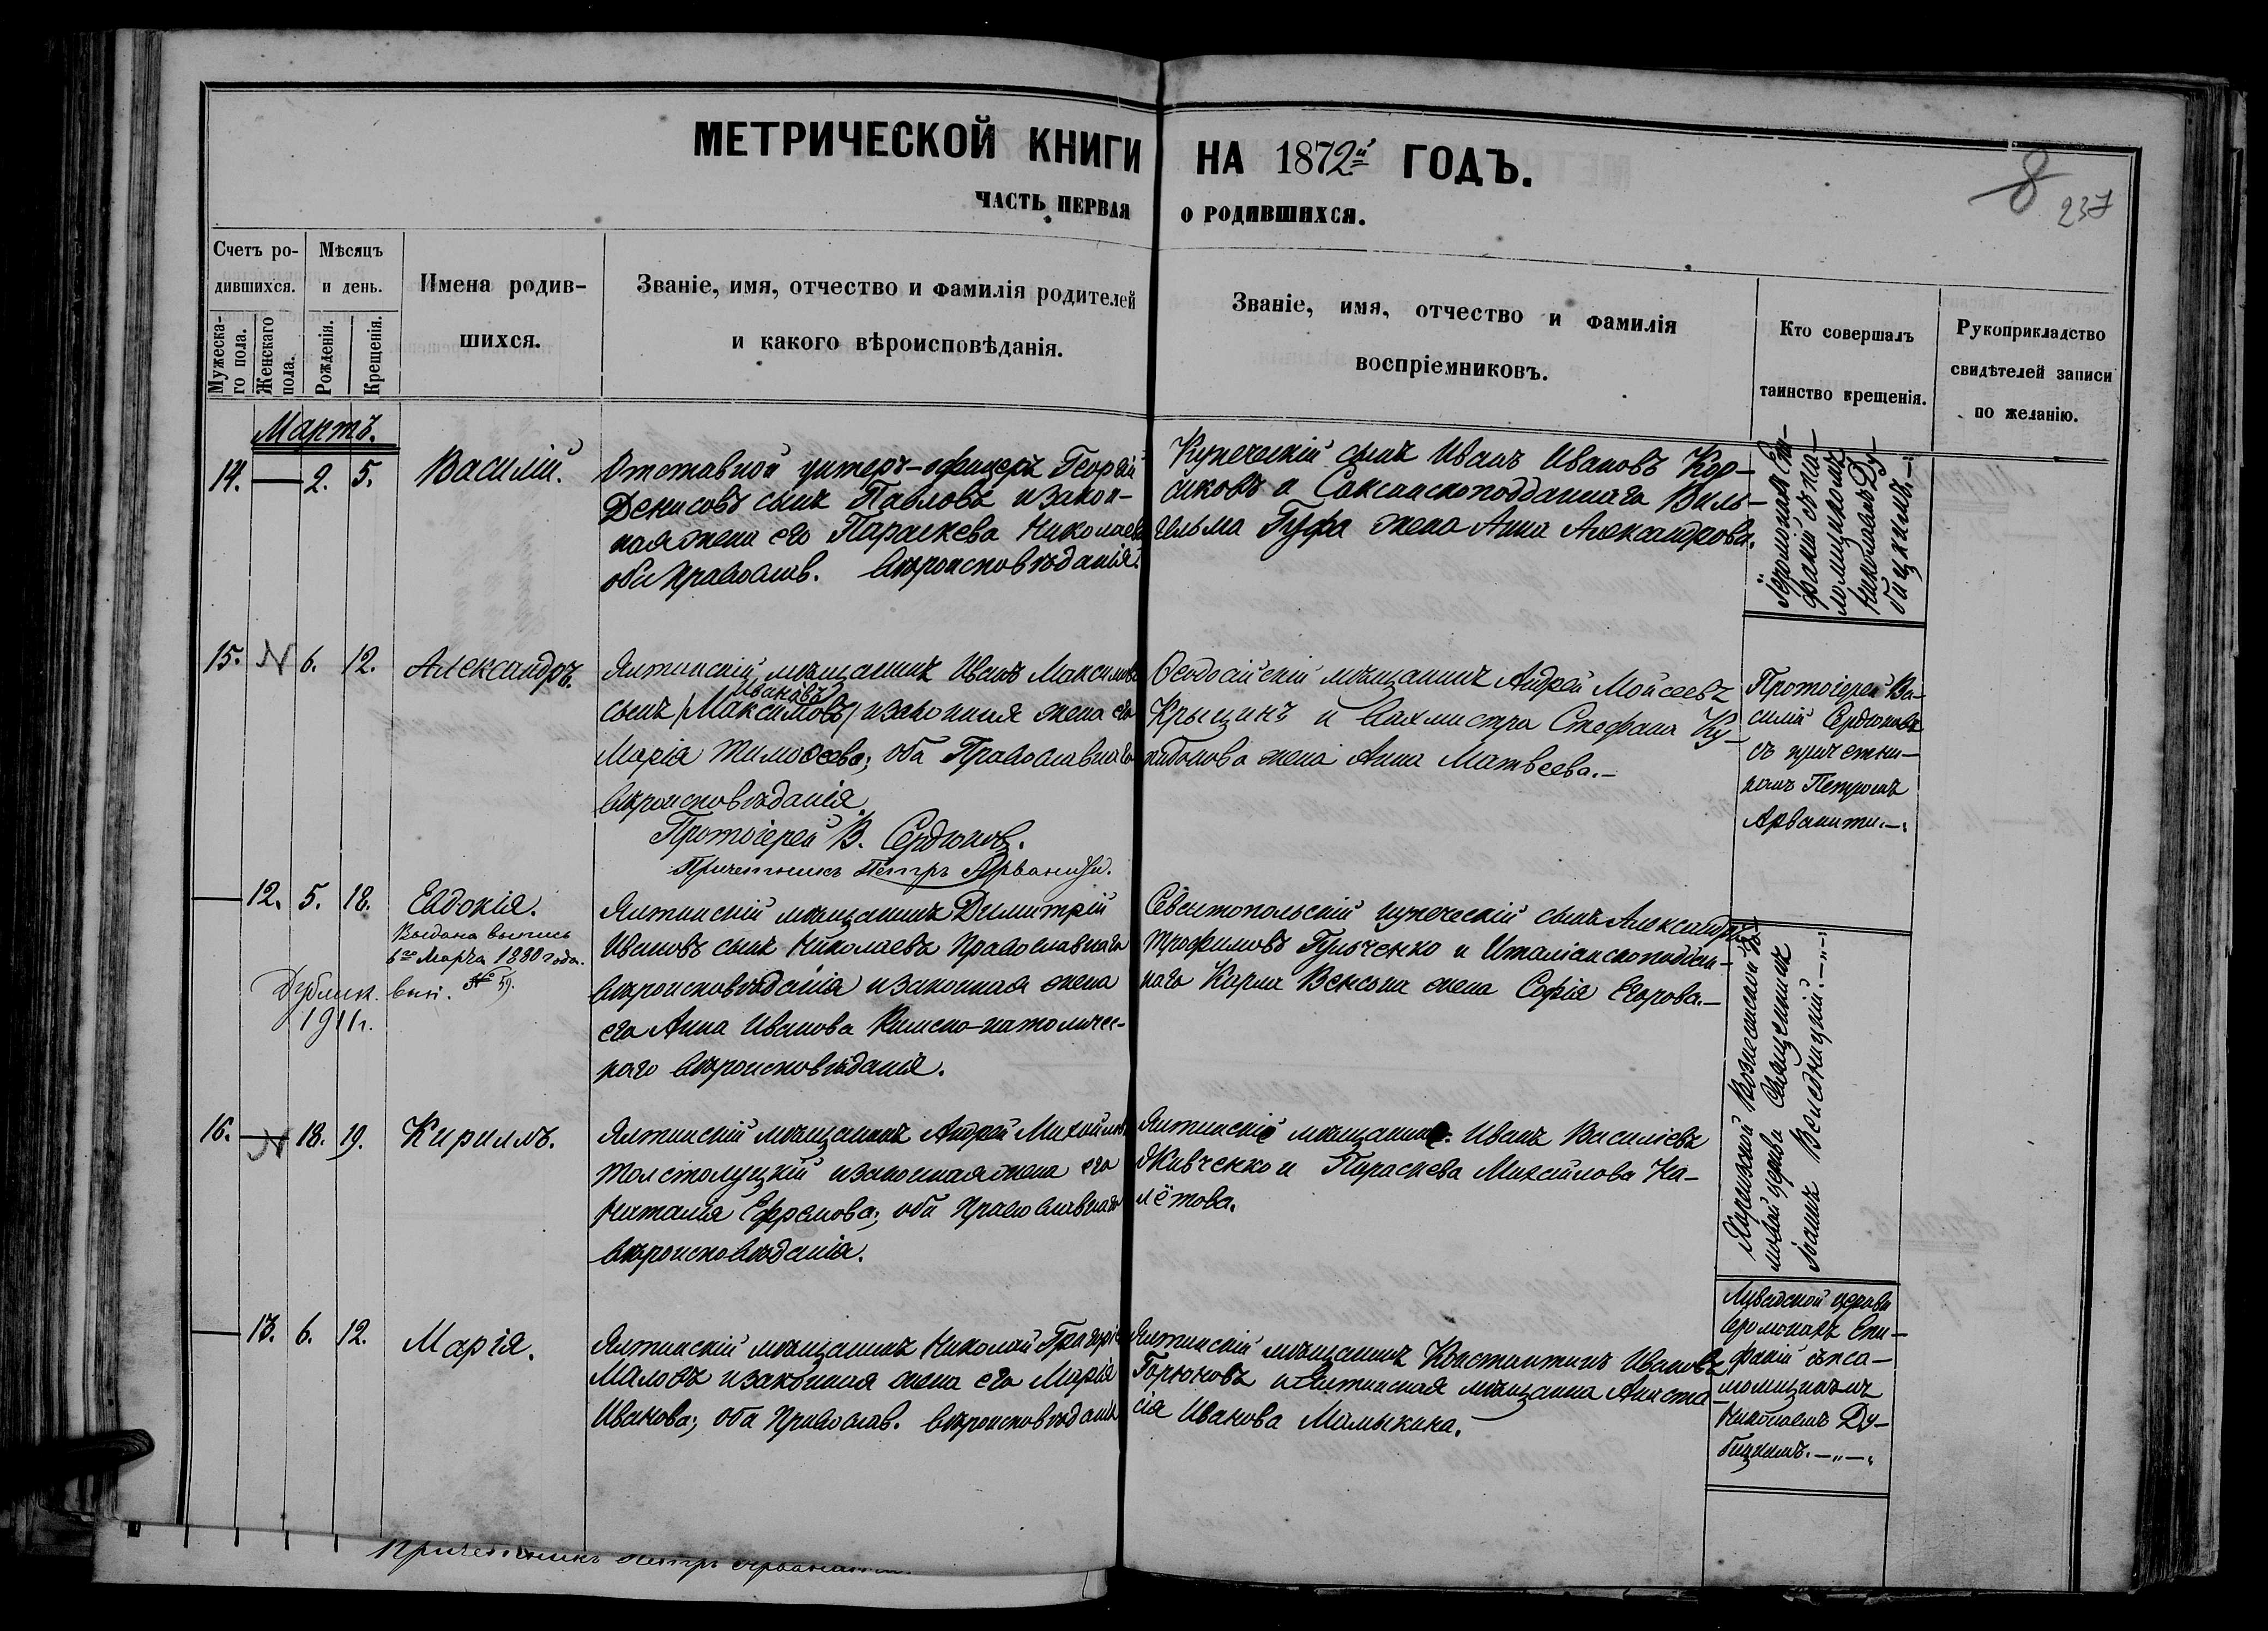 МЕТРИЧЕСКОЙ КНИГИ НА 1872й ГОДЪ.
ЧАСТЬ ПЕРВАЯ О РОДИВШИХСЯ.
8 237
Счетъ ро-
дившихся.
Мужеска-
го пола.
Женскаго
пола.
Мѣсяцъ
и день.
Рожденія.
Крещенія.
Имена родив-
шихся.
Званіе, имя, отчество и фамилія родителей
и какого вѣроисповѣданія.
Званіе, имя, отчество и фамилія
воспріемниковъ.
Кто совершалъ
таинство крещенія.
Рукоприкладство
свидѣтелей записи
по желанію.
Мартъ.
14. — 2. 5. Василій.
Отставной унтеръ-офицеръ Георгій
Денисовъ сынъ Павловъ и закон-
ная жена его Параскева Николаева
оба православ. вѣроисповѣданія.
Купеческій сынъ Иванъ Ивановъ Кор-
сиковъ и Саксанскоподданнаго Виль-
гельма Гуфа жена Анна Александрова.
Іеромонахъ Епи-
фаній съ пса-
ломщикомъ
Николаемъ Ду-
бицкимъ.—
15. N 6. 12. Александръ.
Ялтинскій мѣщанинъ Иванъ Максимовъ
Ивановъ
сынъ /Максимовъ/ и законная жена его
Марія Тимоѳеева; оба Православнаго
вѣроисповѣданія.
Протоіерей В. Сердюков.
Причетникъ Петръ Арваниди.
Ѳеодосійскій мѣщанинъ Андрей Мойсеевъ
Крыцинъ и вахмистра Стефана Ку-
пидонова жена Анна Матвеева.—
Протоіерей Ва-
силій Сердюковъ
съ причетни-
комъ Петромъ
Арванити.—
— 12. 5. 18. Евдокія.
Выдана выпись
6го Марта 1880 года.
№ 59.
Дублик. вып.
1911 г.
Ялтинскій мѣщанинъ Димитрій
Ивановъ сынъ Николаевъ Православнаго
вѣроисповѣданія и законная жена
его Анна Иванова Римско-католичес-
каго вѣроисповѣданія.
Севастопольскій купеческій сынъ Александръ
Трофимовъ Гульченко и Италіанскоподдан-
наго Карла Венсана жена Софія Егорова.—
16. — N 18. 19. Кириллъ.
Ялтинскій мѣщанинъ Андрей Михайловъ
Толстолуцкій и законная жена его
Наталія Ефремова; оба православнаго
вѣроисповѣданія.
Ялтинскіе мѣщане: Иванъ Василіевъ
Живченко и Параскева Михайлова Ка-
лётова.
церкви Священникъ
Іоаннъ
— 13. 6. 12. Марія.
Ялтинскій мѣщанинъ Николай Григоріев
Маловъ и законная жена его Марія
Иванова; оба Православ. вѣроисповѣданія
Ялтинскій мѣщанинъ Константинъ Ивановъ
Горюновъ и Ялтинская мѣщанка Анаста-
сія Иванова Мамыкина.
Ливадской церкви
Іеромонахъ Епи-
фаній съ пса-
ломщикомъ
Николаемъ Ду-
бицкимъ.—
Причетникъ Петръ